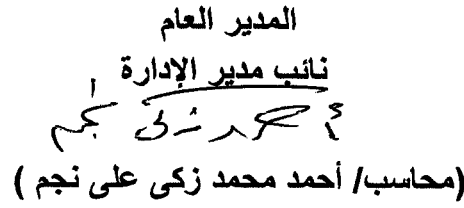 المدير العام
نائب مدير الإدارة
أحمد زكى نجم
(محاسب/ أحمد محمد زكى على نجم )